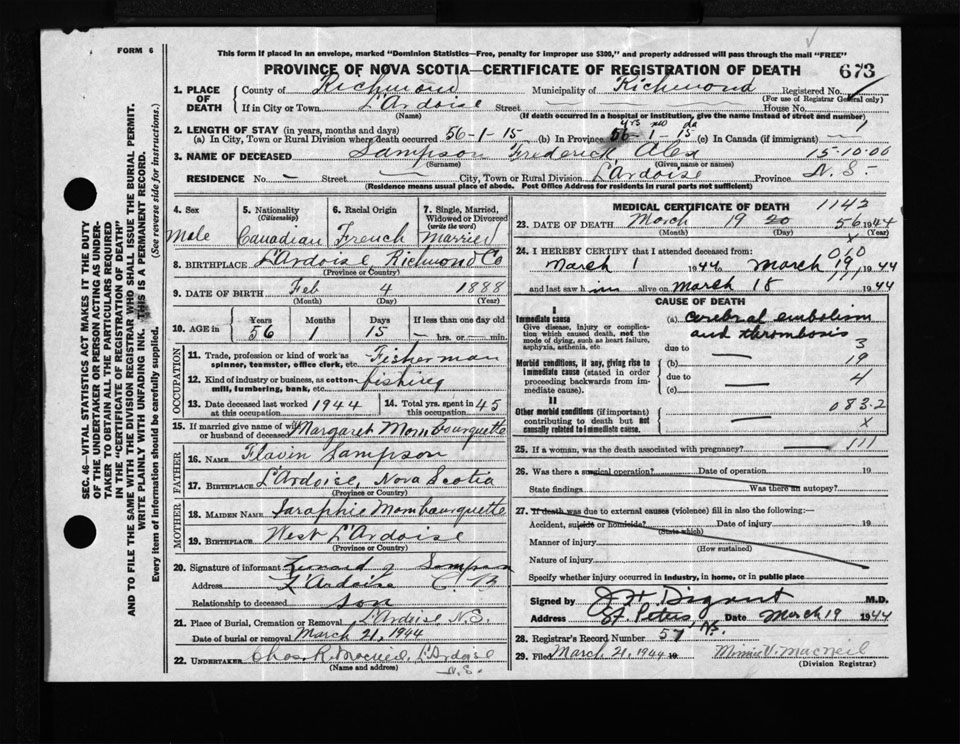 FORM 6
This form if placed in an envelope, marked "Dominion Statistics—Free, penalty for improper use $300," and properly addressed will pass through the mail "FREE"
PROVINCE OF NOVA SCOTIA—CERTIFICATE OF REGISTRATION OF DEATH 673
1. PLACE OF DEATH County of Richmond Municipality of Richmond Registered No.
(For use of Registrar General only)
If in City or Town L'Ardoise Street House No.
(Name) (If death occurred in a hospital or institution, give the name instead of street and number)
2. LENGTH OF STAY (in years, months and days) yrs mo da
(a) In City, Town or Rural Division where death occurred 56-1-15 (b) In Province 56-1-15 (c) In Canada (if immigrant) 1
3. NAME OF DECEASED Sampson Frederick, Alex 15-10-00
(Surname) (Given name or names)
RESIDENCE No. – Street City, Town or Rural Division L'Ardoise Province N.S.
(Residence means usual place of abode. Post Office Address for residents in rural parts not sufficient)
4. Sex Male
5. Nationality (Citizenship) Canadian
6. Racial Origin French
7. Single, Married, Widowed or Divorced (write the word) Married
8. BIRTHPLACE L'Ardoise Richmond Co
(Province or Country)
9. DATE OF BIRTH Feb 4 1888
(Month) (Day) (Year)
10. AGE in Years Months Days If less than one day old
56 1 15 hrs. or min.
OCCUPATION
11. Trade, profession or kind of work as spinner, teamster, office clerk, etc. Fisherman
12. Kind of industry or business, as cotton mill, lumbering, bank, etc. fishing
13. Date deceased last worked at this occupation 1944
14. Total yrs. spent in this occupation 45
15. If married give name of wife or husband of deceased Margaret Mombourquette
FATHER
16. NAME Flavin Sampson
17. BIRTHPLACE L'Ardoise, Nova Scotia
(Province or Country)
MOTHER
18. MAIDEN NAME Saraphie Mombourquette
19. BIRTHPLACE West L'Ardoise
(Province or Country)
20. Signature of informant J Sampson
Address L'Ardoise C B
Relationship to deceased Son
21. Place of Burial, Cremation or Removal L'Ardoise N.S.
Date of burial or removal March 21, 1944
22. UNDERTAKER Chas R. Macneil, L'Ardoise
(Name and address) N.S.
MEDICAL CERTIFICATE OF DEATH 1142
23. DATE OF DEATH March 19 20 56 1944
(Month) (Day) (Year)
x
24. I HEREBY CERTIFY that I attended deceased from: 090
March 1 1944 to March 19 1944
and last saw him alive on March 18 1944
CAUSE OF DEATH
I
Immediate cause
Give disease, injury or complication which caused death, not the mode of dying, such as heart failure, asphyxia, asthenia, etc
(a) cerebral embolism and thrombosis
due to 3
Morbid conditions, if any, giving rise to immediate cause (stated in order proceeding backwards from immediate cause).
(b) 19
due to 4
(c)
II
Other morbid conditions (if important) contributing to death but not causally related to immediate cause.
083.2
x
25. If a woman, was the death associated with pregnancy? 111
26. Was there a surgical operation? Date of operation 19
State findings Was there an autopsy?
27. If death was due to external causes (violence) fill in also the following:—
Accident, suicide or homicide? Date of injury 19
(State which)
Manner of injury
(How sustained)
Nature of injury
Specify whether injury occurred in industry, in home, or in public place
Signed by M.D.
Address St. Peters, N.S. Date March 19 1944
28. Registrar's Record Number 57
29. Filed March 21, 1944 19 Minnie V. MacNeil
(Division Registrar)
SEC. 46—VITAL STATISTICS ACT MAKES IT THE DUTY
OF THE UNDERTAKER OR PERSON ACTING AS UNDERTAKER TO OBTAIN ALL THE PARTICULARS REQUIRED
IN THE "CERTIFICATE OF REGISTRATION OF DEATH"
AND TO FILE THE SAME WITH THE DIVISION REGISTRAR WHO SHALL ISSUE THE BURIAL PERMIT.
WRITE PLAINLY WITH UNFADING INK. THIS IS A PERMANENT RECORD.
Every item of information should be carefully supplied. (See reverse side for instructions.)